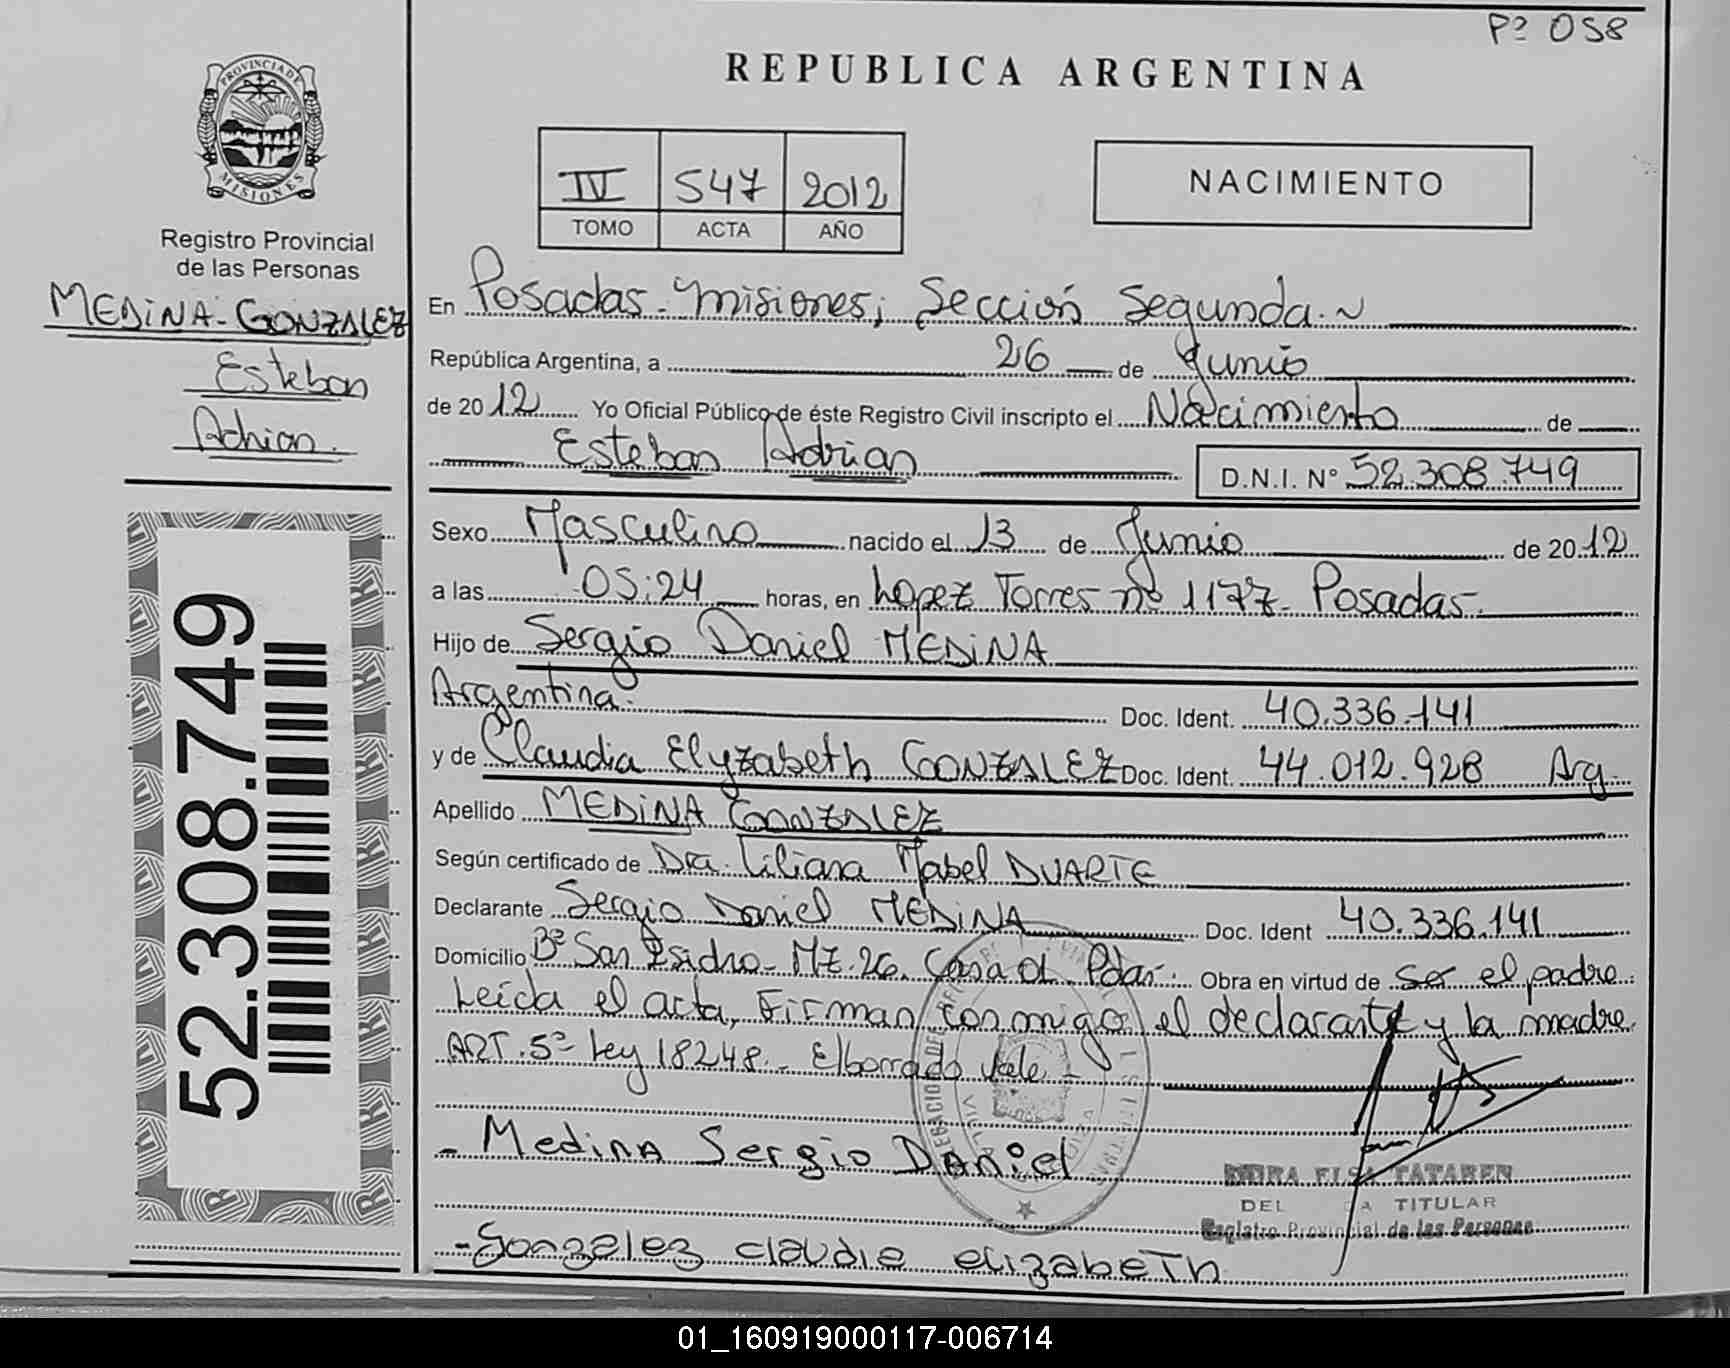 Pº 058
REPUBLICA ARGENTINA
PROVINCIA DE
MISIONES
Registro Provincial
de las Personas
MEDINA-GONZALEZ
Esteban
Adrian.
52.308.749
IV 547 2012
TOMO ACTA AÑO
NACIMIENTO
En Posadas - Misiones, Sección Segunda.~
República Argentina, a 26 de Junio
de 2012 Yo Oficial Público de éste Registro Civil inscripto el Nacimiento de
Esteban Adrian D.N.I. Nº 52.308.749
Sexo Masculino nacido el 13 de Junio de 2012
a las 05:24 horas, en Lopez Torres nº 1177- Posadas-
Hijo de Sergio Daniel MEDINA
Argentina. Doc. Ident. 40.336.141
y de Claudia Elyzabeth GONZALEZ Doc. Ident. 44.012.928 Arg.
Apellido MEDINA GONZALEZ
Según certificado de Dra. Liliana Mabel DUARTE
Declarante Sergio Daniel MEDINA Doc. Ident 40.336.141
Domicilio Bº San Isidro- MZ.26. Casa Pdas. Obra en virtud de ser el padre.
Leída el acta, Firman conmigo el declarante y la madre.
ART. 5º Ley 18248.- El borrado vale -
- Medina Sergio Daniel
ELSA TATAREN
DEL A TITULAR
Registro Provincial de las Personas
- Gonzalez claudie elizabeTh
01_160919000117-006714